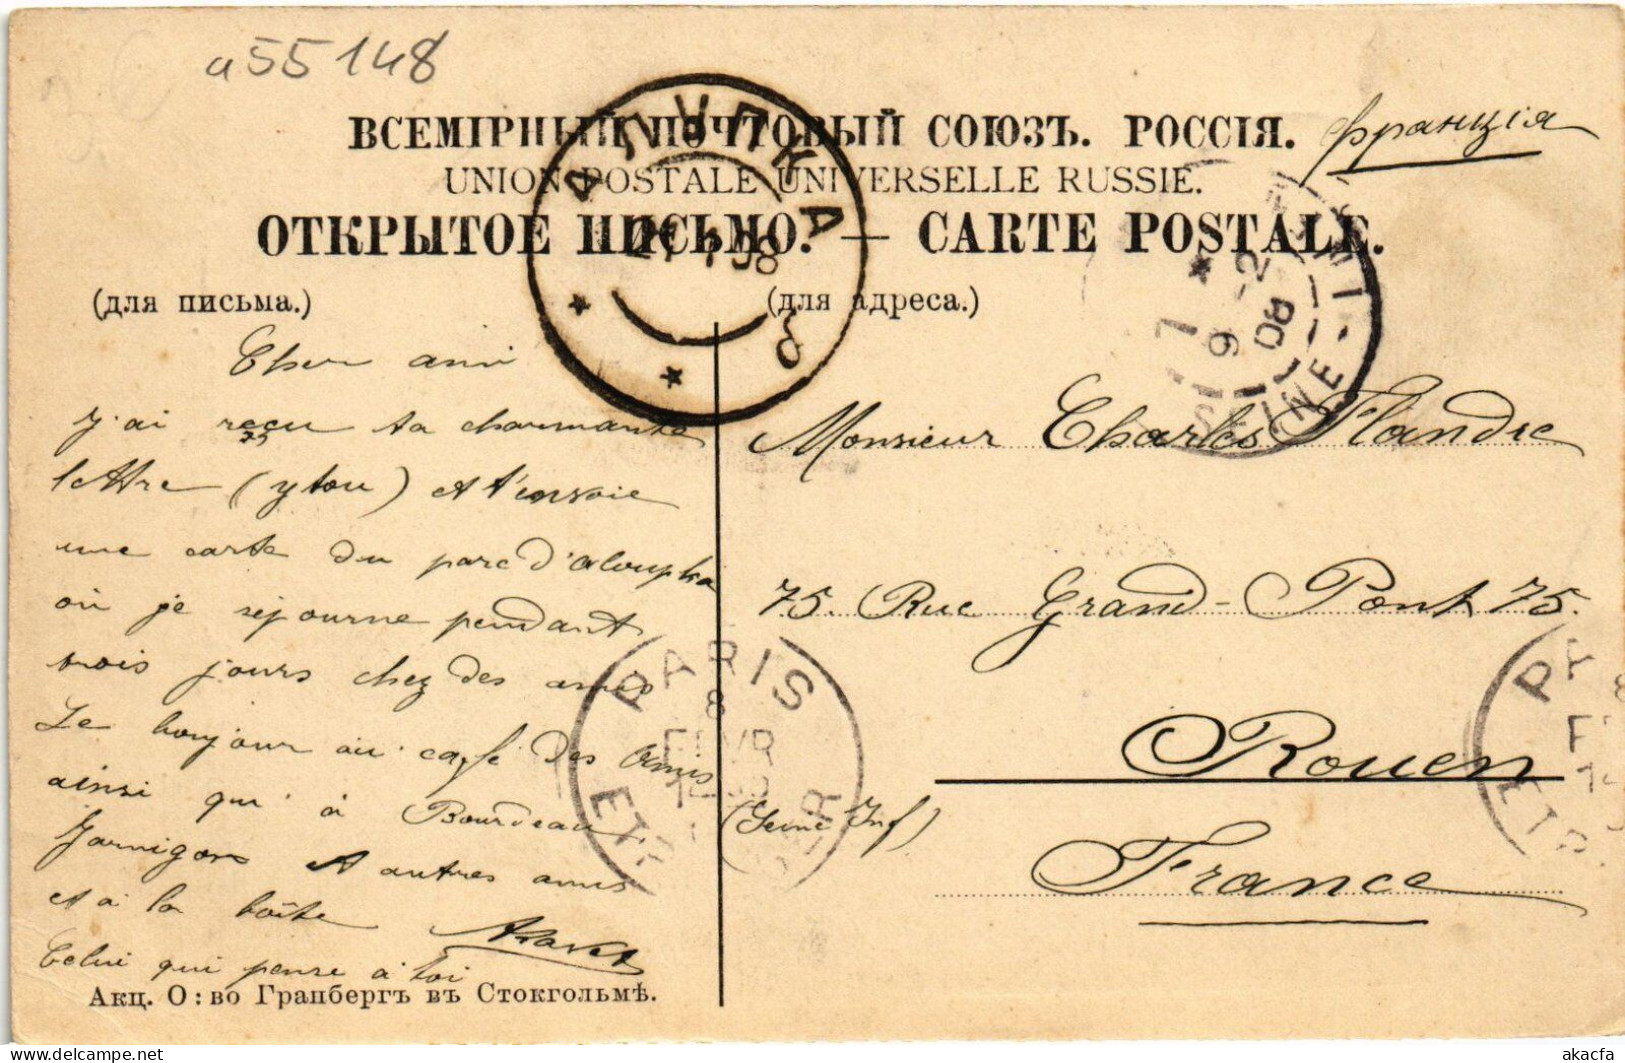 a55148
ВСЕМІРНЫЙ ПОЧТОВЫЙ СОЮЗЪ. РОССІЯ. Франція
UNION POSTALE UNIVERSELLE RUSSIE.
ОТКРЫТОЕ ПИСЬМО. — CARTE POSTALE.
АЛУПКА
(для письма.)
(для адреса.)
Cher ami
j'ai reçu ta charmante
lettre (y tou) et t'envoie
une carte du parc d'aloupka
où je séjourne pendant
trois jours chez des amis
Le bonjour au café des amis
ainsi qu'à Bourdeau
Jarnigon et autres amis
et à la boîte
Celui qui pense à toi
Акц. О:во Гранбергъ въ Стокгольмѣ.
Monsieur Charles Flandre
75. Rue Grand-Pont 75.
Rouen
(Seine Inf)
France
PARIS
8
FEVR
ETR
9 - 2
08
akacfa
delcampe.net